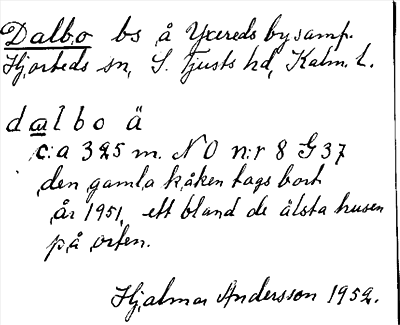 Dalbo bs å Yxereds bysamp.
Hjorteds sn, S. Tjusts hd, Kalm. l.
dalbo ä
c:a 325 m. N O n:r 8 G 37
den gamla kåken togs bort
år 1951, ett bland de älsta husen
på orten.
Hjalmar Andersson 1952.